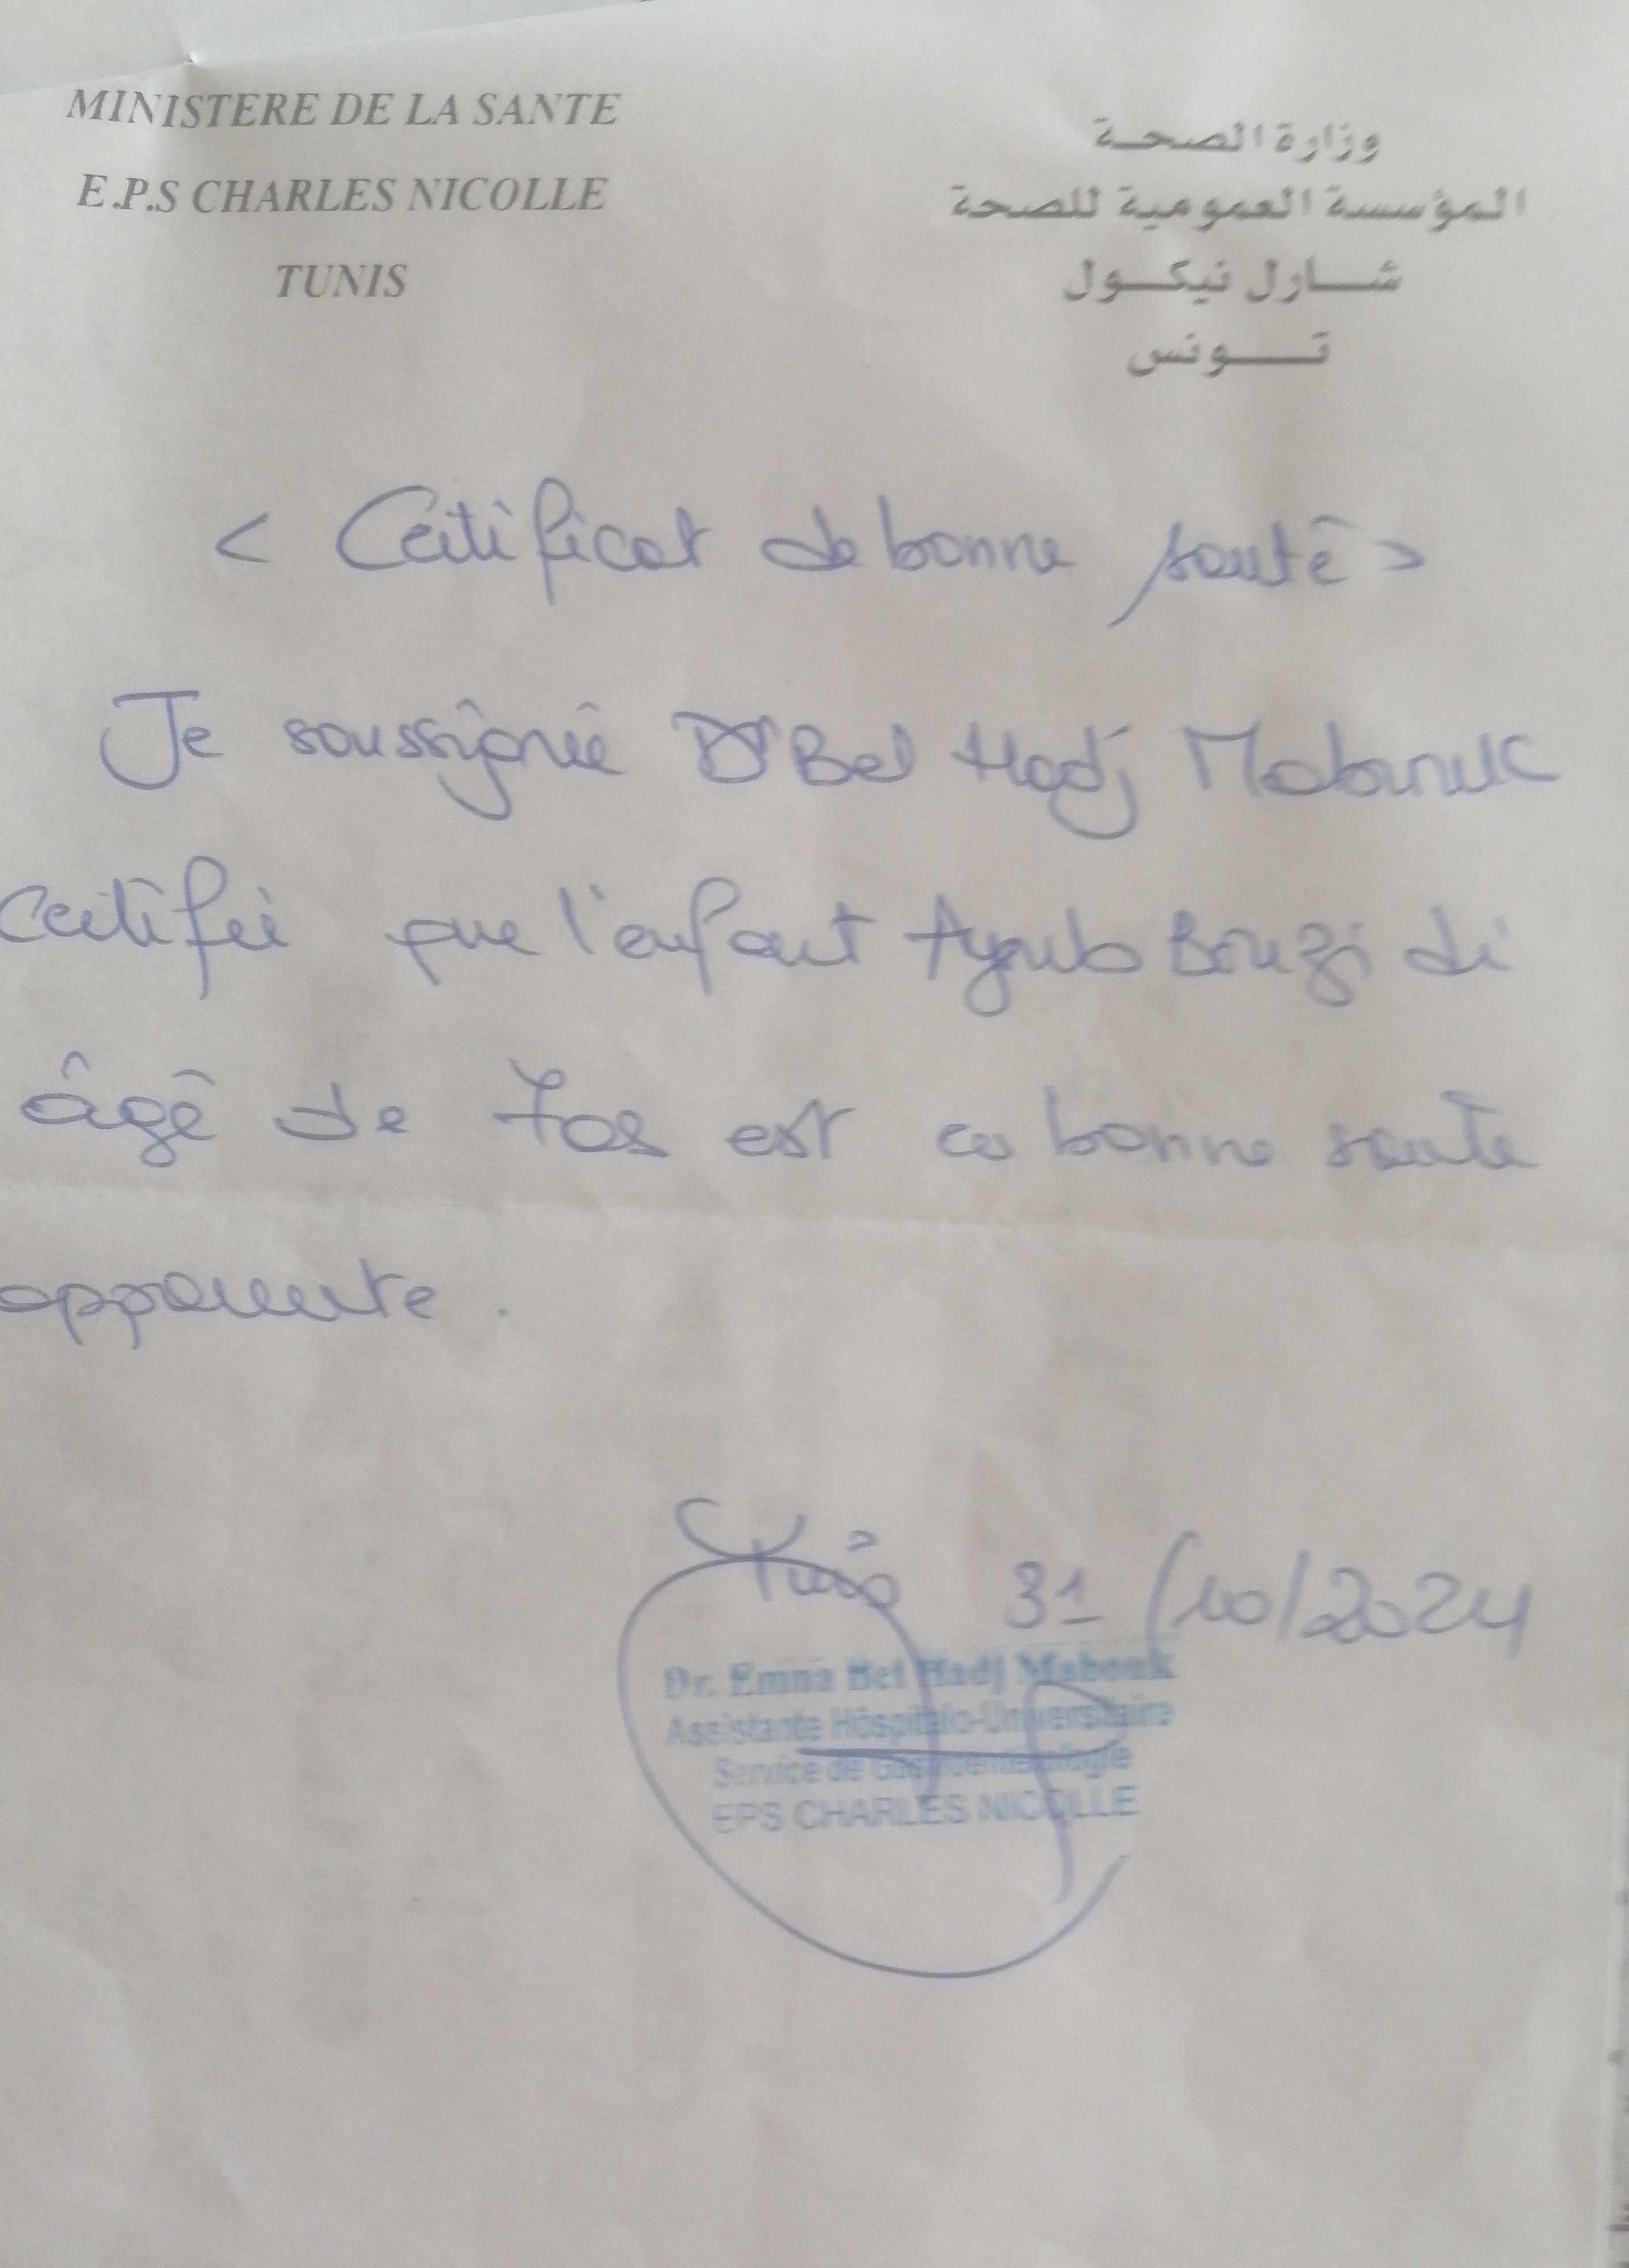 MINISTERE DE LA SANTE
E.P.S CHARLES NICOLLE
TUNIS
وزارة الصحة
المؤسسة العمومية للصحة
شارل نيكول
تونس
< Certificat de bonne santé >
Je soussignée Dr Bel Hadj Mabrouk
Certifie que l'enfant Ayoub Bouzi di
âgé de 7as est en bonne santé
apparente.
Tunis 31/10/2024
Dr. Emna Bel Hadj Mabouk
Assistante Hospitalo-Universitaire
Service de Gastroentérologie
EPS CHARLES NICOLLE